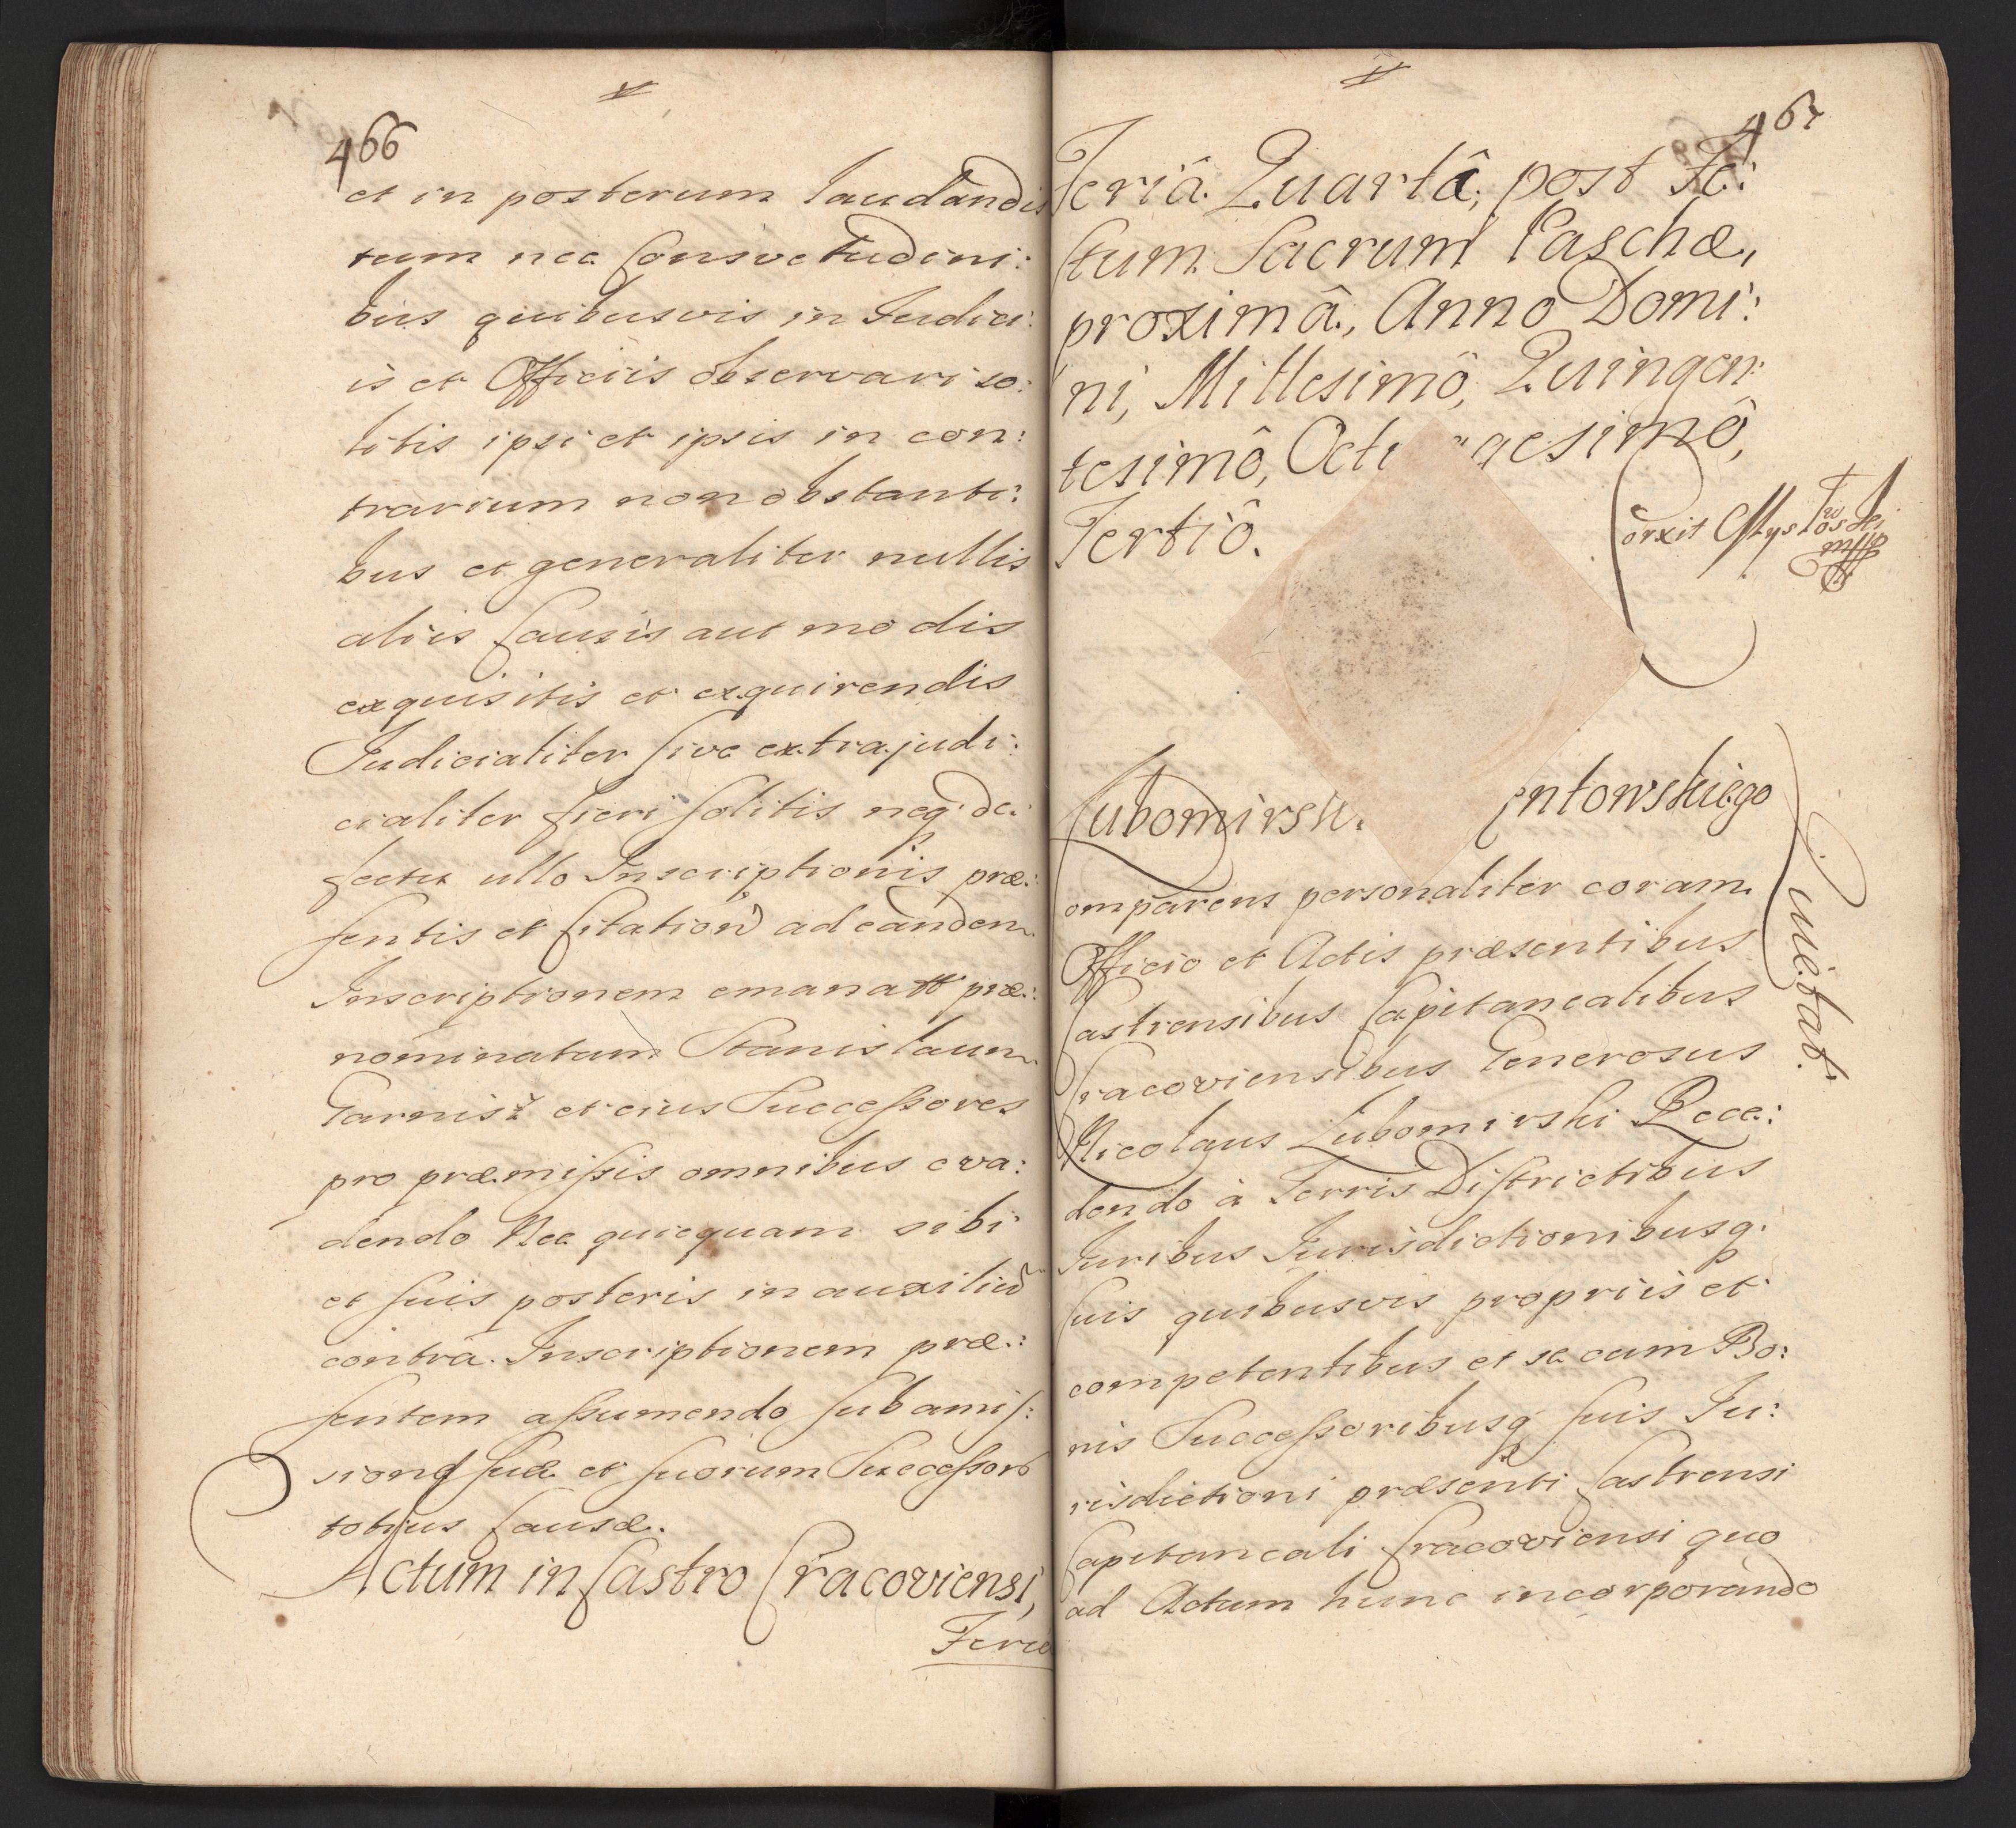 466
et in posterum laudandis
tum nec Consvetudini:
bus quibusvis in Iudici:
is et Officiis observari so:
litis ipsi et ipsis in con:
trarium non obstanti:
bus et generaliter nullis
aliis Causis aut modis
exquisitis et exquirendis
Iudicialiter sive extrajudi:
cialiter fieri solitis neq. de:
fectu ullo Inscriptionis præ:
sentis et Citation ad eandem
Inscriptionem emanatt præ:
nominatum Stanislaum
Garnisz et eius Successores
pro præmissis omnibus eva:
dendo Nec quicquam sibi
et suis posteris in auxiliu
contrâ Inscriptionem præ:
sentem assumendo sub amis:
sione suæ et suorum Successor
totius Causæ.
Actum in Castro Cracoviensi,
Feria
467
Feriâ Quartâ, post Fe:
stum Sacrum Paschæ,
proximâ, Anno Domi:
ni, Millesimô, Quingen:
tesimô, Octu gesimô,
Tertiô.
Corxit
Lubomirski entowskiego
Quietat.
omparens personaliter coram
Officio et Actis præsentibus
Castrensibus Capitanealibus
Cracoviensibus Generosus
Nicolaus Lubomirski Rece:
dendo à Terris Districtibus
Iuribus Iurisdictionibusq.
suis quibusvis propriis et
competentibus et se cum Bo:
nis Successoribusq suis Iu:
risdictioni præsenti Castrensi
Capitaneali Cracoviensi quo
ad Actum hunc incorporando